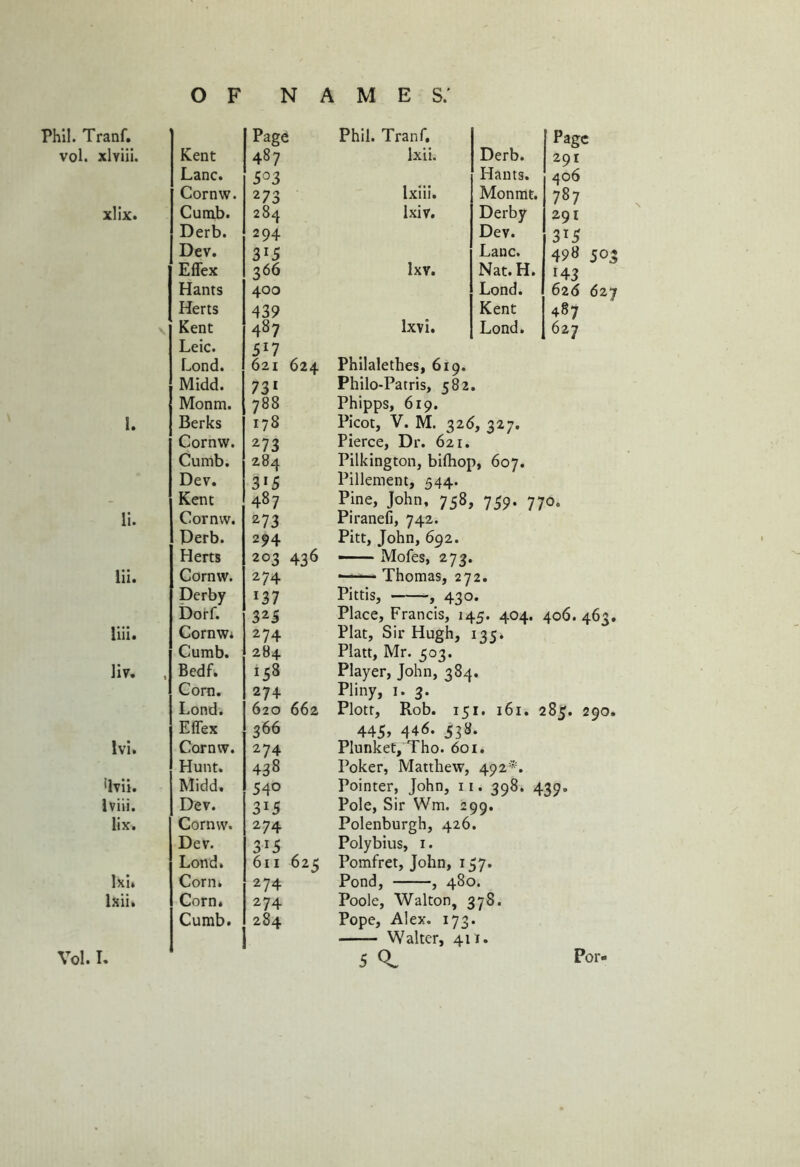 OF NAMES.
Phil. Tranf. Page
vol. xlviii. Kent 487
Lanc. 503
Cornw. 273
xlix. Cumb. 284
Derb. 294
Dev. 315
Effex 366
Hants 400
Herts 439
Kent 487
Leic. 517
Lond. 621 624
Midd. 731
Monm. 788
l. Berks 178
Cornw. 273
Cumb. 284
Dev. 315
Kent 487
li. Cornw. 273
Derb. 294
Herts 203 436
lii. Cornw. 274
Derby 137
Dorf. 325
liii. Cornw. 274
Cumb. 284
liv. Bedf. 158
Corn. 274
Lond. 620 662
Effex 366
lvi. Cornw. 274
Hunt. 438
lvii. Midd. 540
lviii. Dev. 315
lix. Cornw. 274
Dev. 315
Lond. 611 625
lxi. Corn. 274
lxii. Corn. 274
Cumb. 284
Phil. Tranf. Page
lxii. Derb. 291
Hants. 406
lxiii. Monmt. 787
lxiv. Derby 291
Dev. 315
Lanc. 498 503
lxv. Nat. H. 143
Lond. 626 627
Kent 487
lxvi. Lond. 627
Philalethes, 619.
Philo-Patris, 582.
Phipps, 619.
Picot, V. M. 326, 327.
Pierce, Dr. 621.
Pilkington, bifhop, 607.
Pillement, 544.
Pine, John, 758, 759. 770.
Piranefi, 742.
Pitt, John, 692.
—— Mofes, 273.
—— Thomas, 272.
Pittis, ——, 430.
Place, Francis, 145. 404. 406. 463.
Plat, Sir Hugh, 135.
Platt, Mr. 503.
Player, John, 384.
Pliny, 1. 3.
Plott, Rob. 151. 161. 285. 290.
445, 446. 538.
Plunket, Tho. 601.
Poker, Matthew, 492*.
Pointer, John, 11. 398. 439.
Pole, Sir Wm. 299.
Polenburgh, 426.
Polybius, 1.
Pomfret, John, 157.
Pond, ——, 480.
Poole, Walton, 378.
Pope, Alex. 173.
—— Walter, 411.
Vol. I. 5 Q Por-